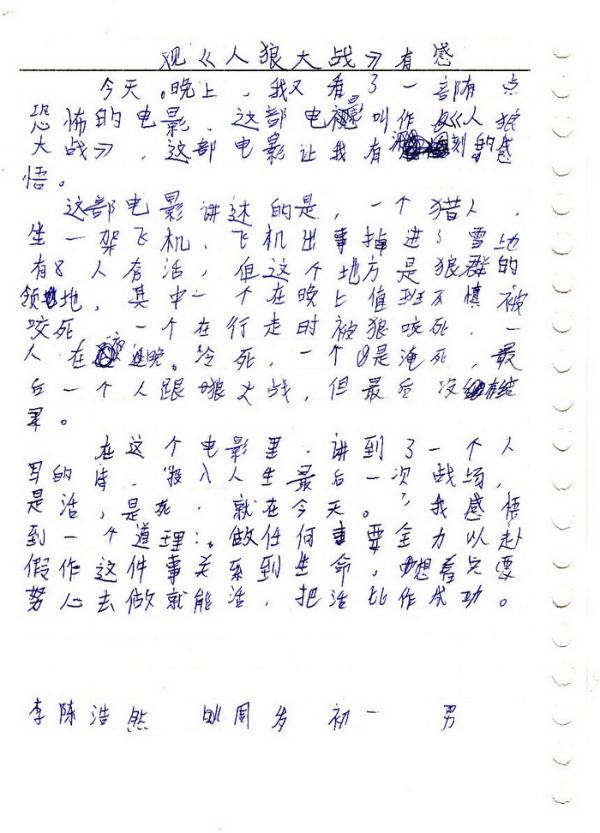 观《人狼大战》有感
今天晚上,我又看了一部有点
恐怖的电影,这部电影叫作《人狼
大战》,这部电影让我有深刻的感
悟。
这部电影讲述的是,一个猎人,
坐一架飞机,飞机出事掉进了雪地
有8人存活,但这个地方是狼群的
领地,其中一个在晚上值班不慎被
咬死,一个在行走时被狼咬死,一
人在夜晚。冷死,一个是淹死,最
后一个人跟狼大战,但最后没有结
果。
在这个电影里,讲到了一个人
写的诗,"投入人生最后一次战场,
是活,是死,就在今天。"我感悟
到一个道理:做任何事要全力以赴
假作这件事关系到生命,想着只要
努心去做就能活,把活比作成功。
李陈浩然 周岁 初一 男